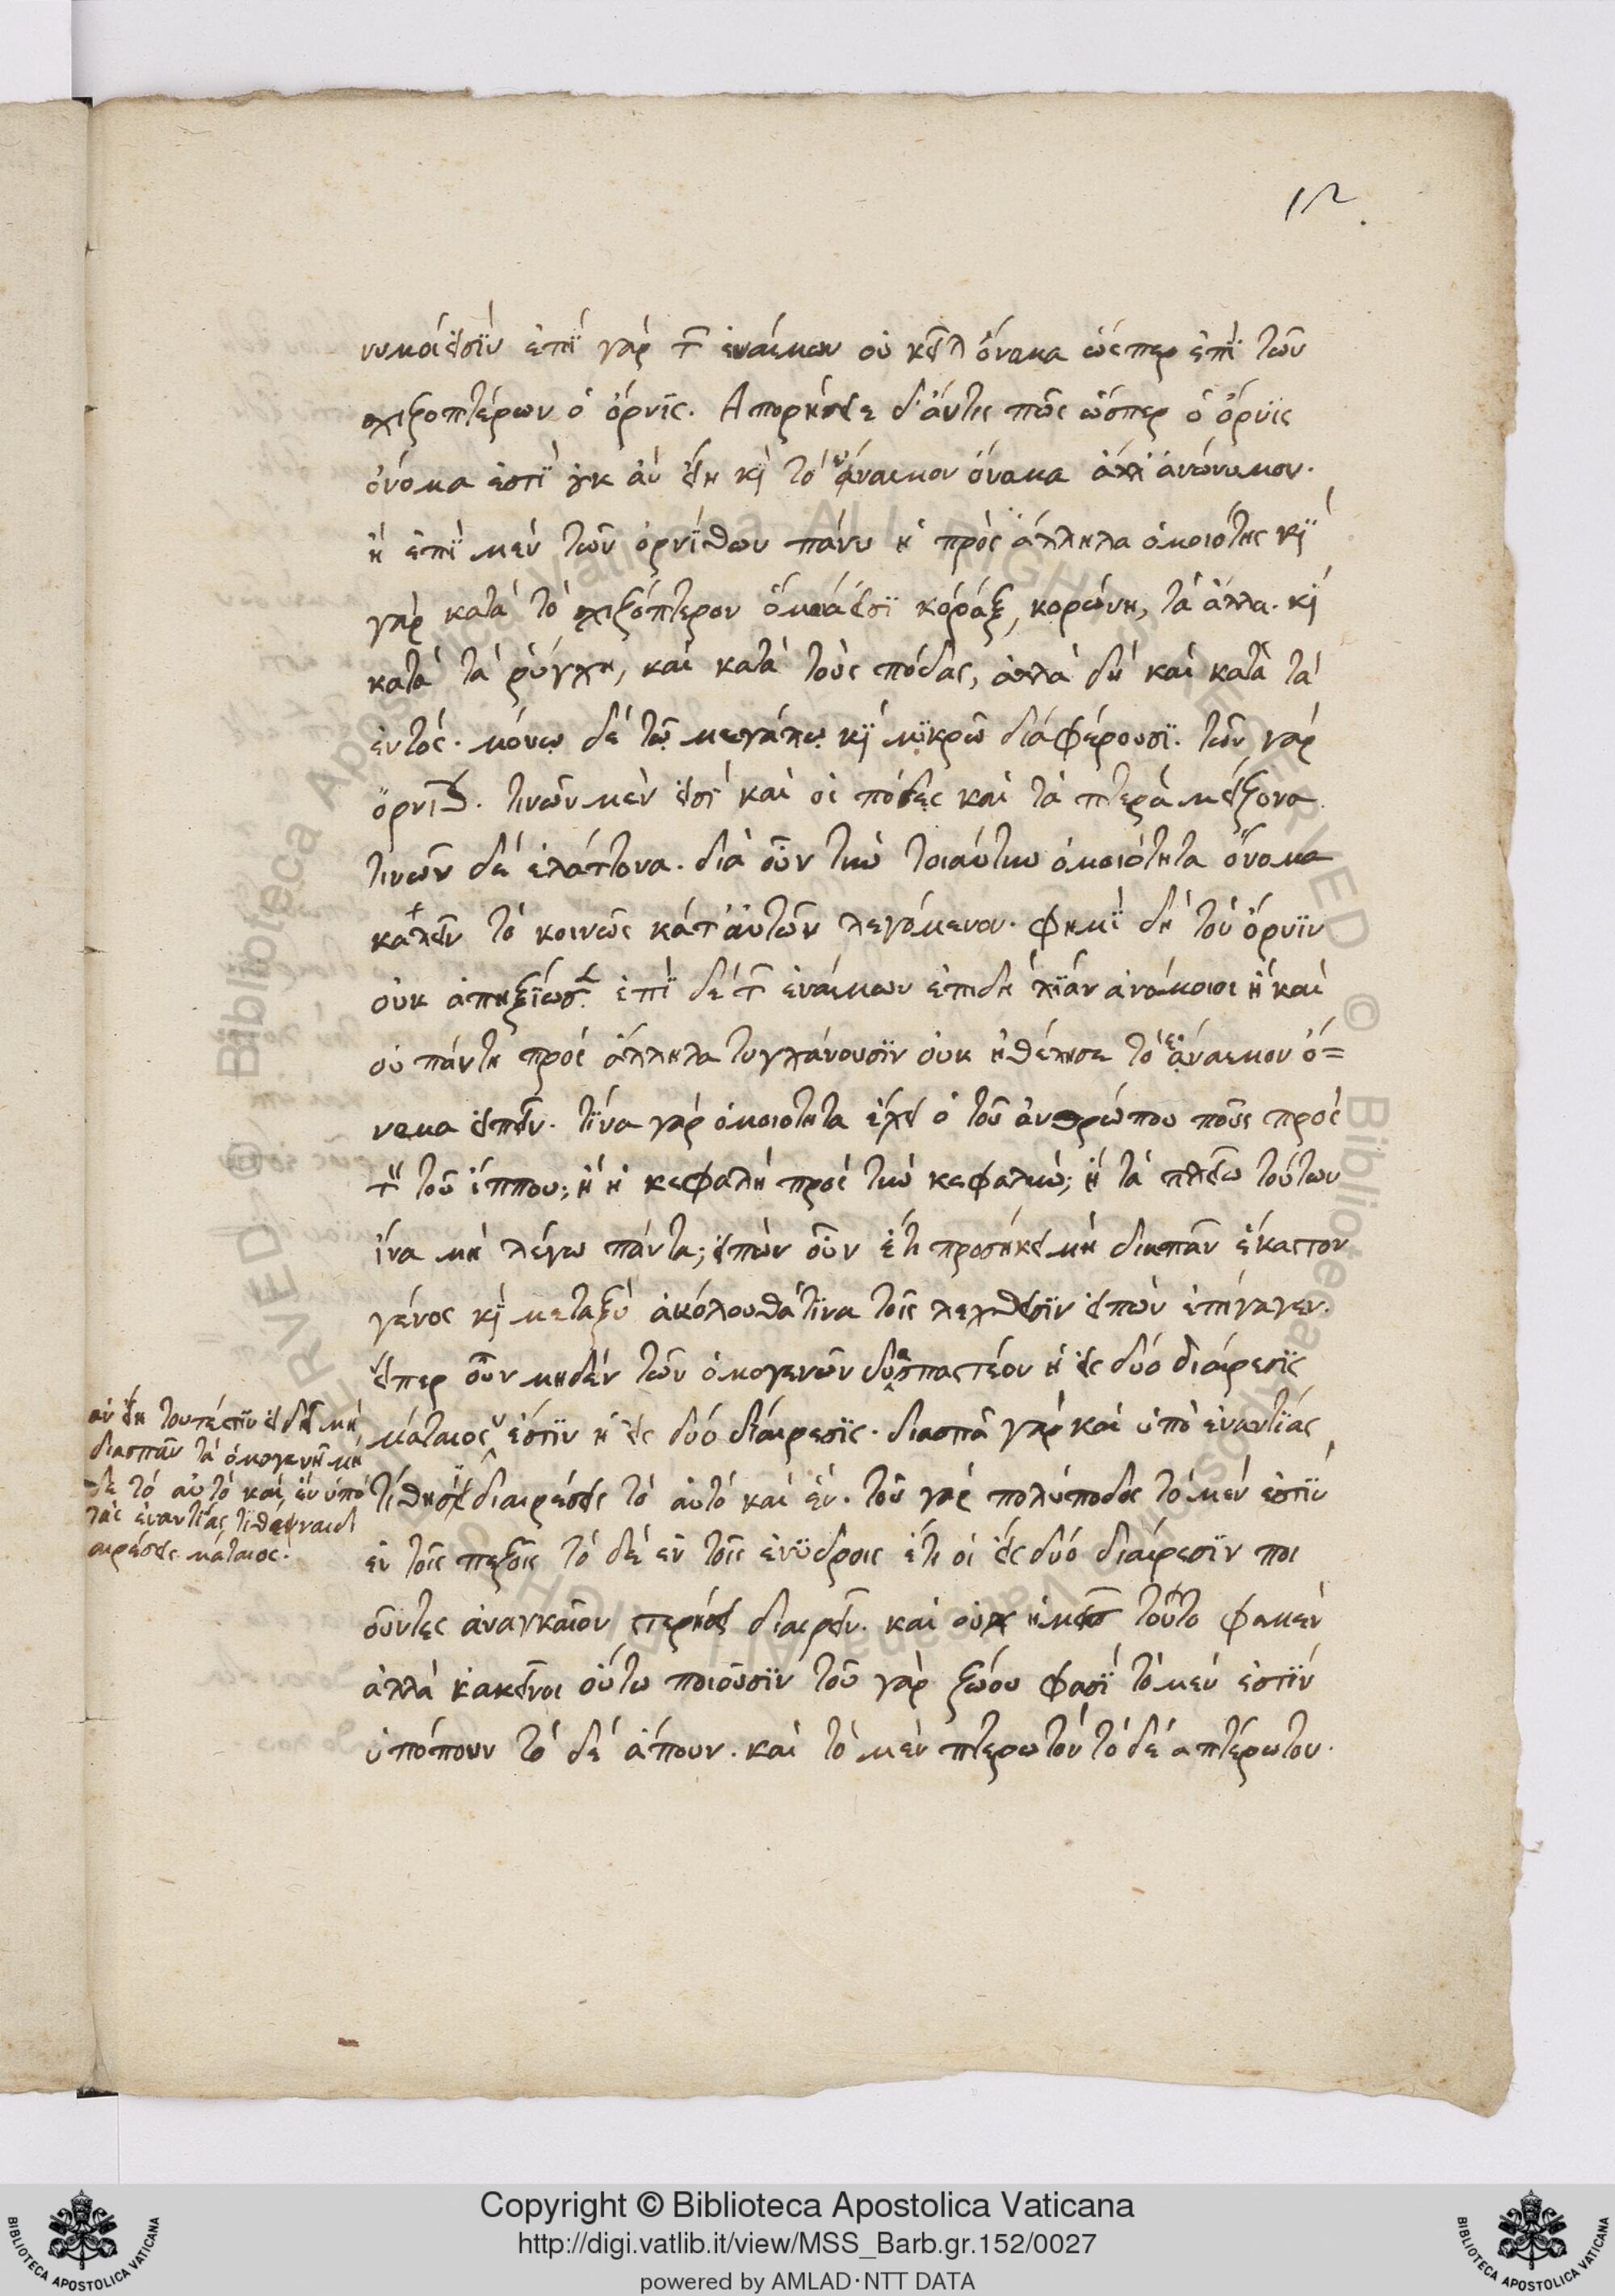 12
νυμοί εἰσϊν ἐπϊ γὰρ τ͂ ἐναίμων οὐ κεῖτ ὄνομα ὥσπερ ἐπϊ τῶν
σχιζοπτέρων ὁ ὄρνϊς. Απορήσειε δ' ἄντις πῶς ὥσπερ ὁ ὄρνϊς
ὄνομα ἐστϊ οὐκ ἂν εἴη κὶ τὸ ἔναιμον ὄνομα ἀλλ' ἀνώνυμον.
ἢ ἐπϊ μὲν τῶν ὀρνίθων πάνυ ἡ πρὸς ἄλληλα ὁμοιότης κὶ
γὰρ κατὰ τὸ σχιζόπτερον ὅμοιά εἰσϊ κόραξ, κορώνη, τὰ ἄλλα. κὶ
κατὰ τὰ ῥύγχη, καὶ κατὰ τοὺς πόδας, ἀλλὰ δὴ καὶ κατὰ τὰ
ἐντός. μόνῳ δὲ τῷ μεγάλῳ κὶ μϊκρῶ διάφέρουσϊ. τῶν γὰρ
ὄρνίθ. τινῶν μὲν εἰσϊ καὶ οἱ πόδες καὶ τὰ πτερὰ μείζονα
τινῶν δὲ ἐλάττονα. διὰ οὖν τὴν τοιαύτην ὁμοιότητα ὄνομα
καλεῖν τὸ κοινῶς κάτ' αὐτῶν λεγόμενον. φημϊ δὴ τὸν ὄρνϊν
οὐκ ἀπηξίωσ. ἐπϊ δὲ τ͂ ἐναίμων ἐπιδὴ λϊάν ἀνόμοιοι ἢ καὶ
οὐ πάντη πρὸς ἄλληλα τυγχάνουσϊν οὐκ ἠθέλησε τὸ ἔναιμον ὄ=
νομα εἰπεῖν. τίνα γὰρ ὁμοιότητα ἔχει ὁ τοῦ ἀνθρώπου ποῦς πρὸς
τ̀ τοῦ ἵππου; ἢ ἡ κεφαλὴ πρὸς τὴν κεφαλὴν; ἢ τὰ πλείω τούτων
ἵνα μὴ λέγω πάντα; εἰπὼν οὖν ἔτι προσήκει μὴ διασπᾶν ἕκαστον
γένος κὶ μεταξὺ ἀκόλουθά τϊνα τοῖς λεχθεῖσϊν εἰπὼν ἐπήγαγεν.
εἴπερ οὖν μηδὲν τῶν ὁμογενῶν διασπαστέον ἡ εἰς δύο διαίρεσϊς
μάταιος ἐστϊν ἡ εἰς δύο διαίρεσϊς. διασπᾶ γὰρ καὶ ὑπὸ ἐναντϊάς
τίθησϊ διαιρέσεις τὸ αὐτὸ καὶ ἕν. τοῦ γὰρ πολύποδος τὸ μὲν ἐστϊν
ἐν τοῖς πεζοῖς τὸ δὲ ἐν τοῖς ἐνύδροις ἔτι οἱ εἰς δύο διαίρεσϊν ποι
οῦντες ἀναγκαῖον στερήσει διαιρεῖν. καὶ οὐχ ἡμεῖς τοῦτο φαμεν
ἀλλὰ κἀκεῖνοι οὕτω ποιοῦσϊν τοῦ γὰρ ζώου φασϊ τὸ μεν ἐστϊν
ὑπόπουν τὸ δὲ ἄπουν. καὶ τὸ μὲν πτερωτὸν τὸ δὲ απτέρωτον.
ἂν εἴη τουτέστϊν εἰ δεῖ μὴ
διασπᾶν τὰ ὁμογενῆ μὴ
δὲ τὸ αὐτὸ καὶ ἓν ὑπὸ
τὰς ἐναντϊας τιθέναι δι
αιρέσεις μάταιος.
Copyright © Biblioteca Apostolica Vaticana
http://digi.vatlib.it/view/MSS_Barb.gr.152/0027
powered by AMLAD·NTT DATA